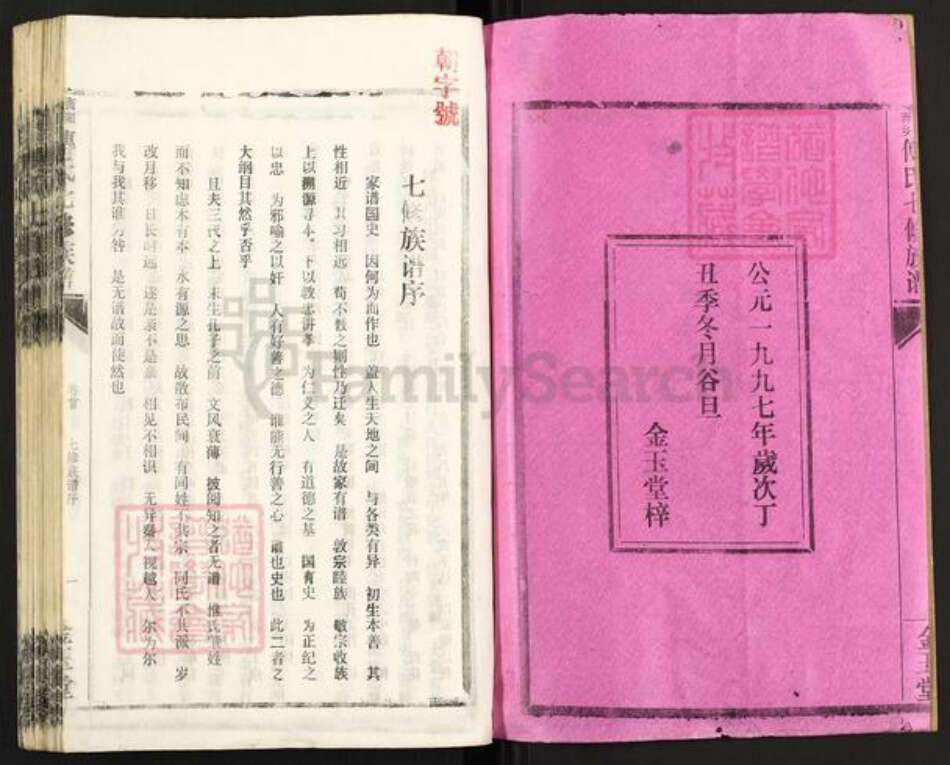 公元一九九七年歲次丁
丑季冬月谷旦
金玉堂梓
氏七修族谱
金玉堂
朝字號
七修族谱序
家谱国史 因何为而作也 盖人生天地之间 与各类有异 初生本善 其
性相近 其习相远 苟不教之则性乃迁矣 是故家有谱 敦宗睦族 敬宗收族
上以溯源寻本 下以教忠讲孝 为仁义之人 有道德之基 国有史 为正纪之
以忠 为邪喻之以奸 人有好善之德 谁能无行善之心 谱也史也 此二者之
大纲目其然乎否乎
且夫三代之上 未生孔子之前 文风衰薄 披阅知之者无谱 惟氏管姓
而不知虑木有本 水有源之思 故散布民间 有同姓不共宗 同氏不共派 岁
改月移 日长时远 遂是亲不是亲 相见不相识 无异秦人视越人 尔为尔
我与我其谁为咎 是无谱故而使然也
卷首 七修族谱序 一
金玉堂
FamilySearch